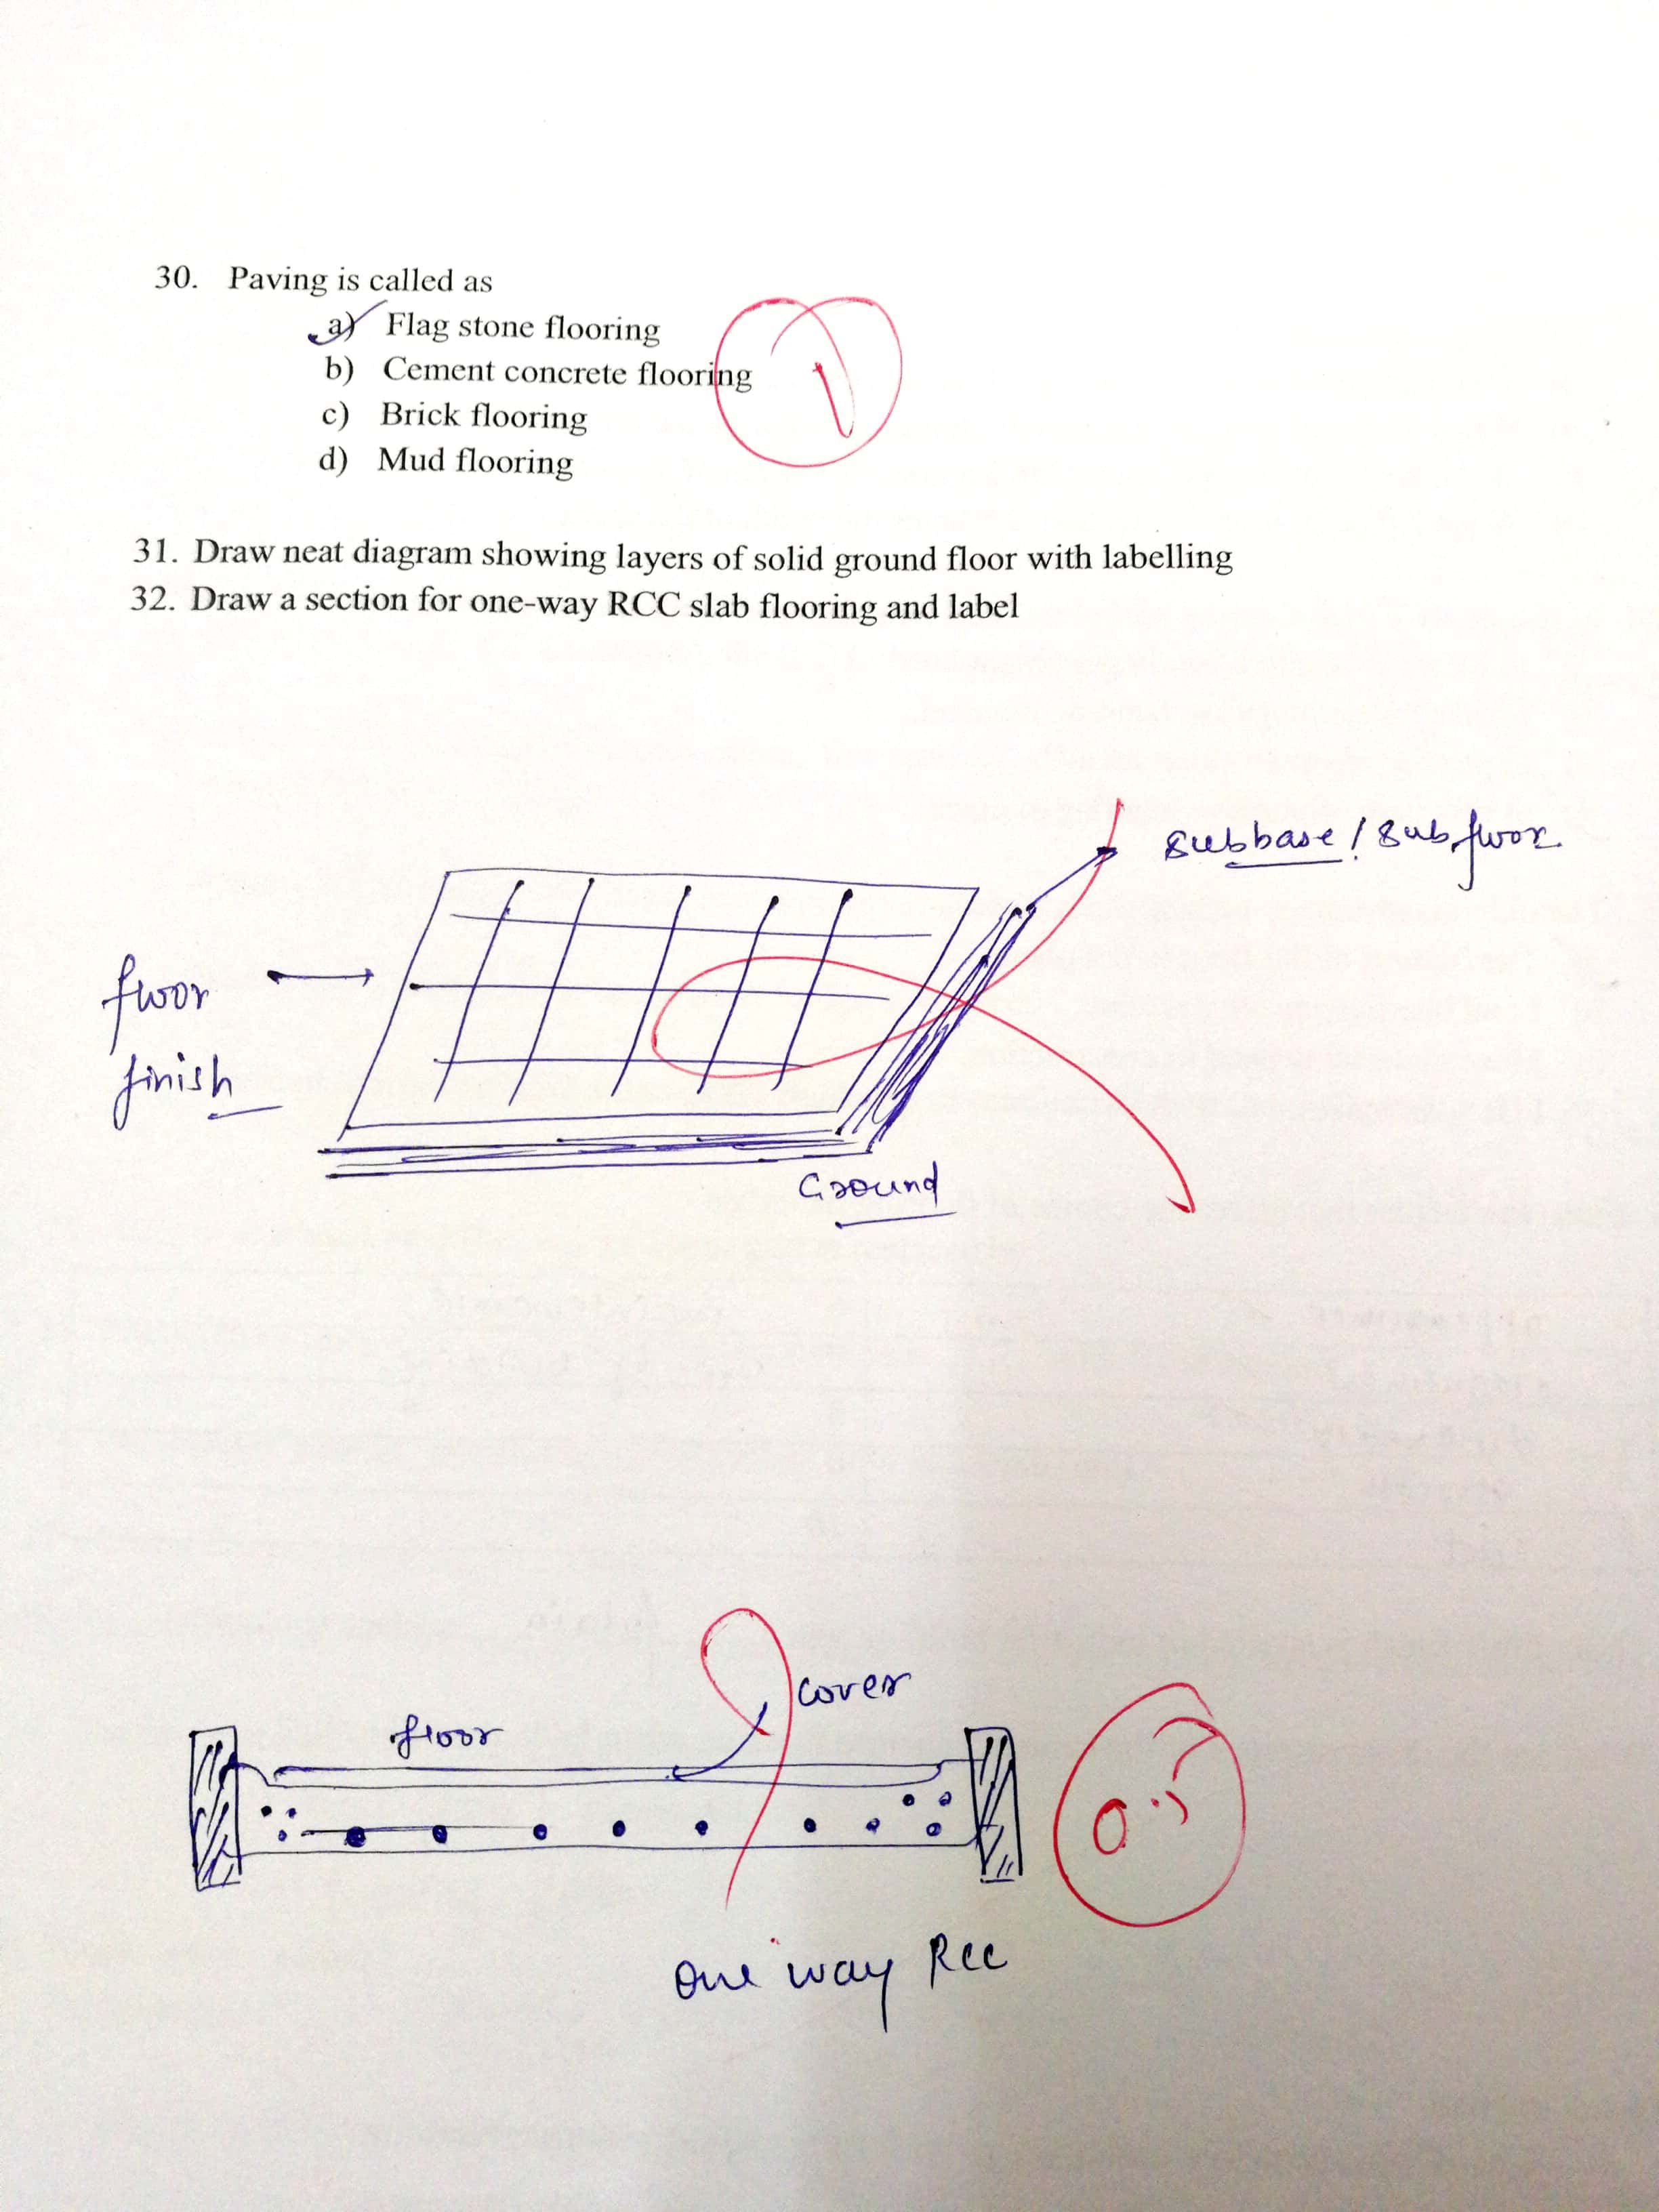 30. Paving is called as
a) Flag stone flooring
b) Cement concrete flooring
c) Brick flooring
d) Mud flooring
1
31. Draw neat diagram showing layers of solid ground floor with labelling
32. Draw a section for one-way RCC slab flooring and label
subbase / subfloor
floor
finish
Ground
cover
floor
0.5
one way RCC